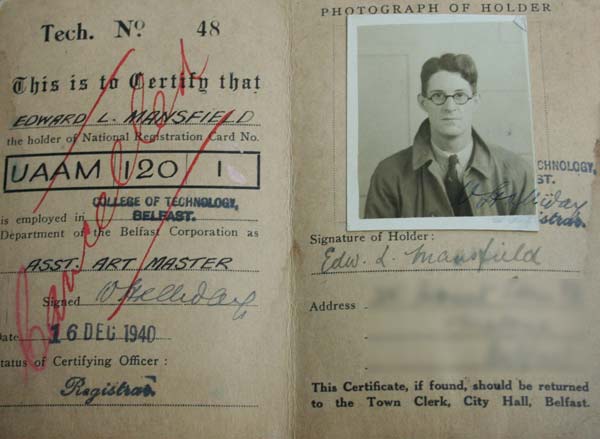 Tech. No 48
This is to Certify that
EDWARD L. MANSFIELD
the holder of National Registration Card No.
UAAM 120 1
is employed in COLLEGE OF TECHNOLOGY,
BELFAST.
Department of the Belfast Corporation as
ASST. ART MASTER
Signed
Date 16 DEC 1940
Status of Certifying Officer :
Registrar.
Cancelled
PHOTOGRAPH OF HOLDER
CHNOLOGY,
ST.
istrar.
Signature of Holder :
Edw. L. Mansfield
Address
This Certificate, if found, should be returned
to the Town Clerk, City Hall, Belfast.